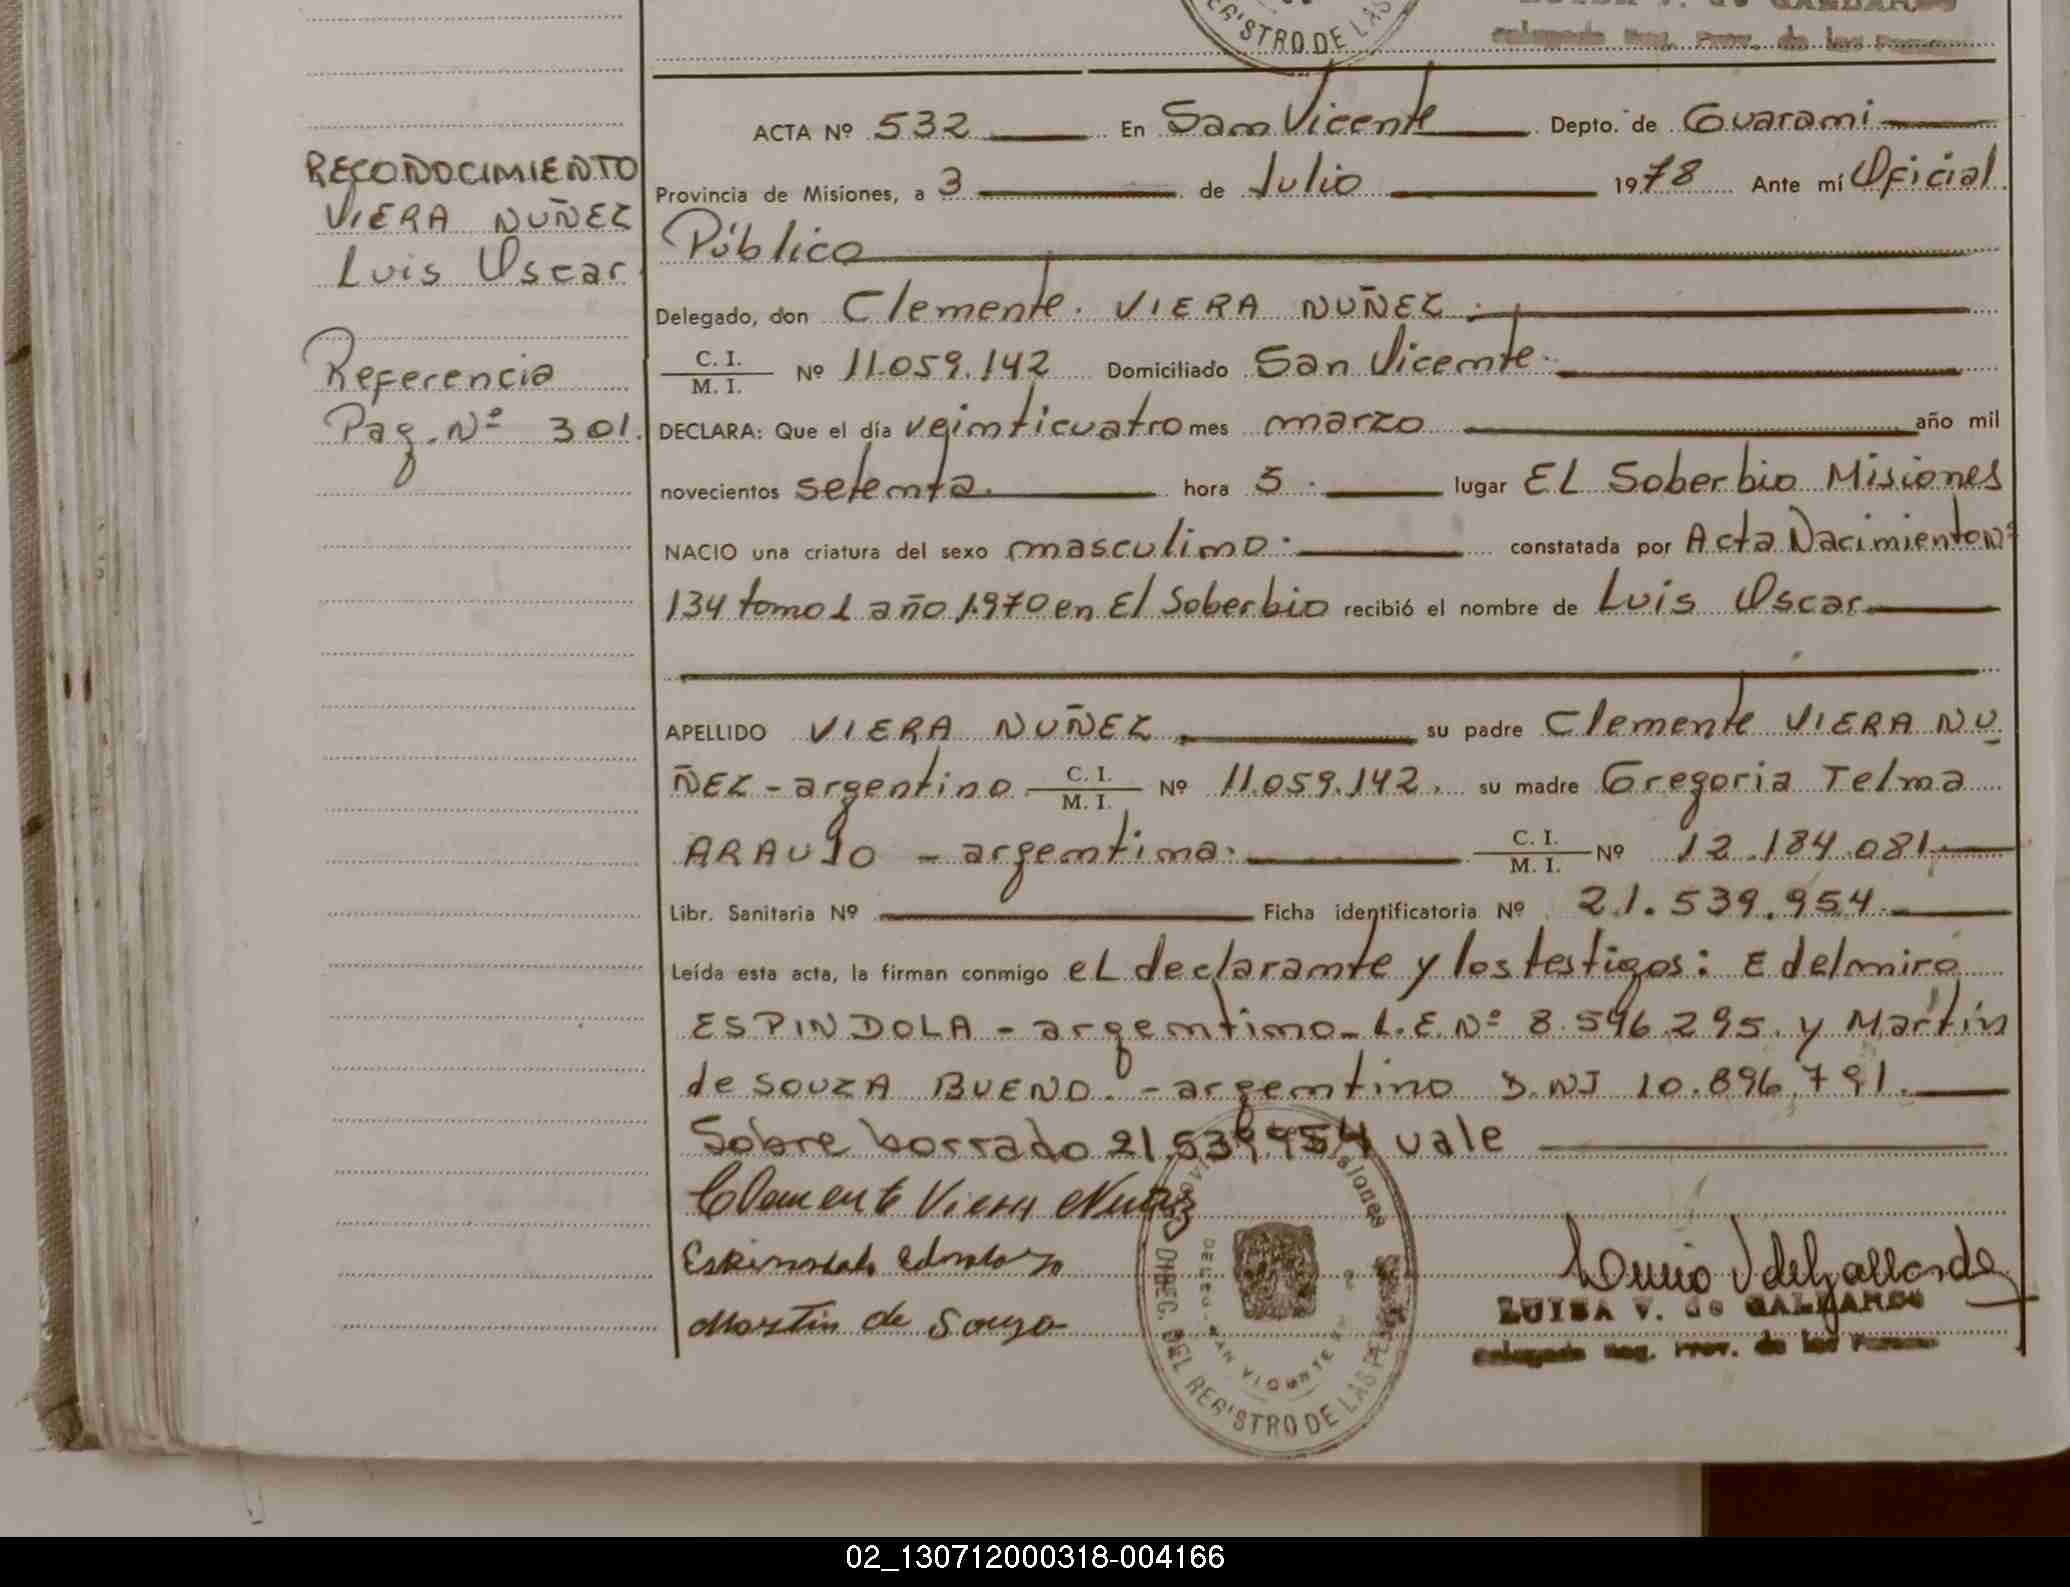 REG'STRO DE LAS
LUISA V. de GALLARDO
Delegada Reg. Prov. de las Personas
ACTA Nº 532 En San Vicente Depto. de Guarani
RECONOCIMIENTO
VIERA NUÑEZ
Luis Oscar
Referencia
Pag. Nº 301.
Provincia de Misiones, a 3 de Julio 1978 Ante mí Oficial
Público
Delegado, don Clemente VIERA NUÑEZ
C. I.
M. I. Nº 11.059.142 Domiciliado San Vicente.
DECLARA: Que el día veinticuatro mes marzo año mil
novecientos setenta. hora 5. lugar EL Soberbio Misiones
NACIO una criatura del sexo masculino. constatada por Acta Nacimiento Nº
134 tomo 1 año 1.970 en El Soberbio recibió el nombre de Luis Oscar
APELLIDO VIERA NUÑEZ su padre Clemente VIERA NU
ÑEZ - argentino C. I.
M. I. Nº 11.059.142. su madre Gregoria Telma
ARAUJO - argentina. C. I.
M. I. Nº 12.184.081
Libr. Sanitaria Nº Ficha identificatoria Nº 21.539.954
Leída esta acta, la firman conmigo eL declarante y los testigos: Edelmiro
ESPINDOLA - argentino - L.E. Nº 8.546.295. y Martín
de SOUZA BUENO. - argentino D.NI 10.896.791.
Sobre borrado 21.539.954 vale
Clemente Viera Nuñez
Martin de Souza
LUISA V. de GALLARDO
Delegada Reg. Prov. de las Personas
DIREC. DEL REG'STRO DE LAS PERSONAS
SAN VICENTE
02_130712000318-004166